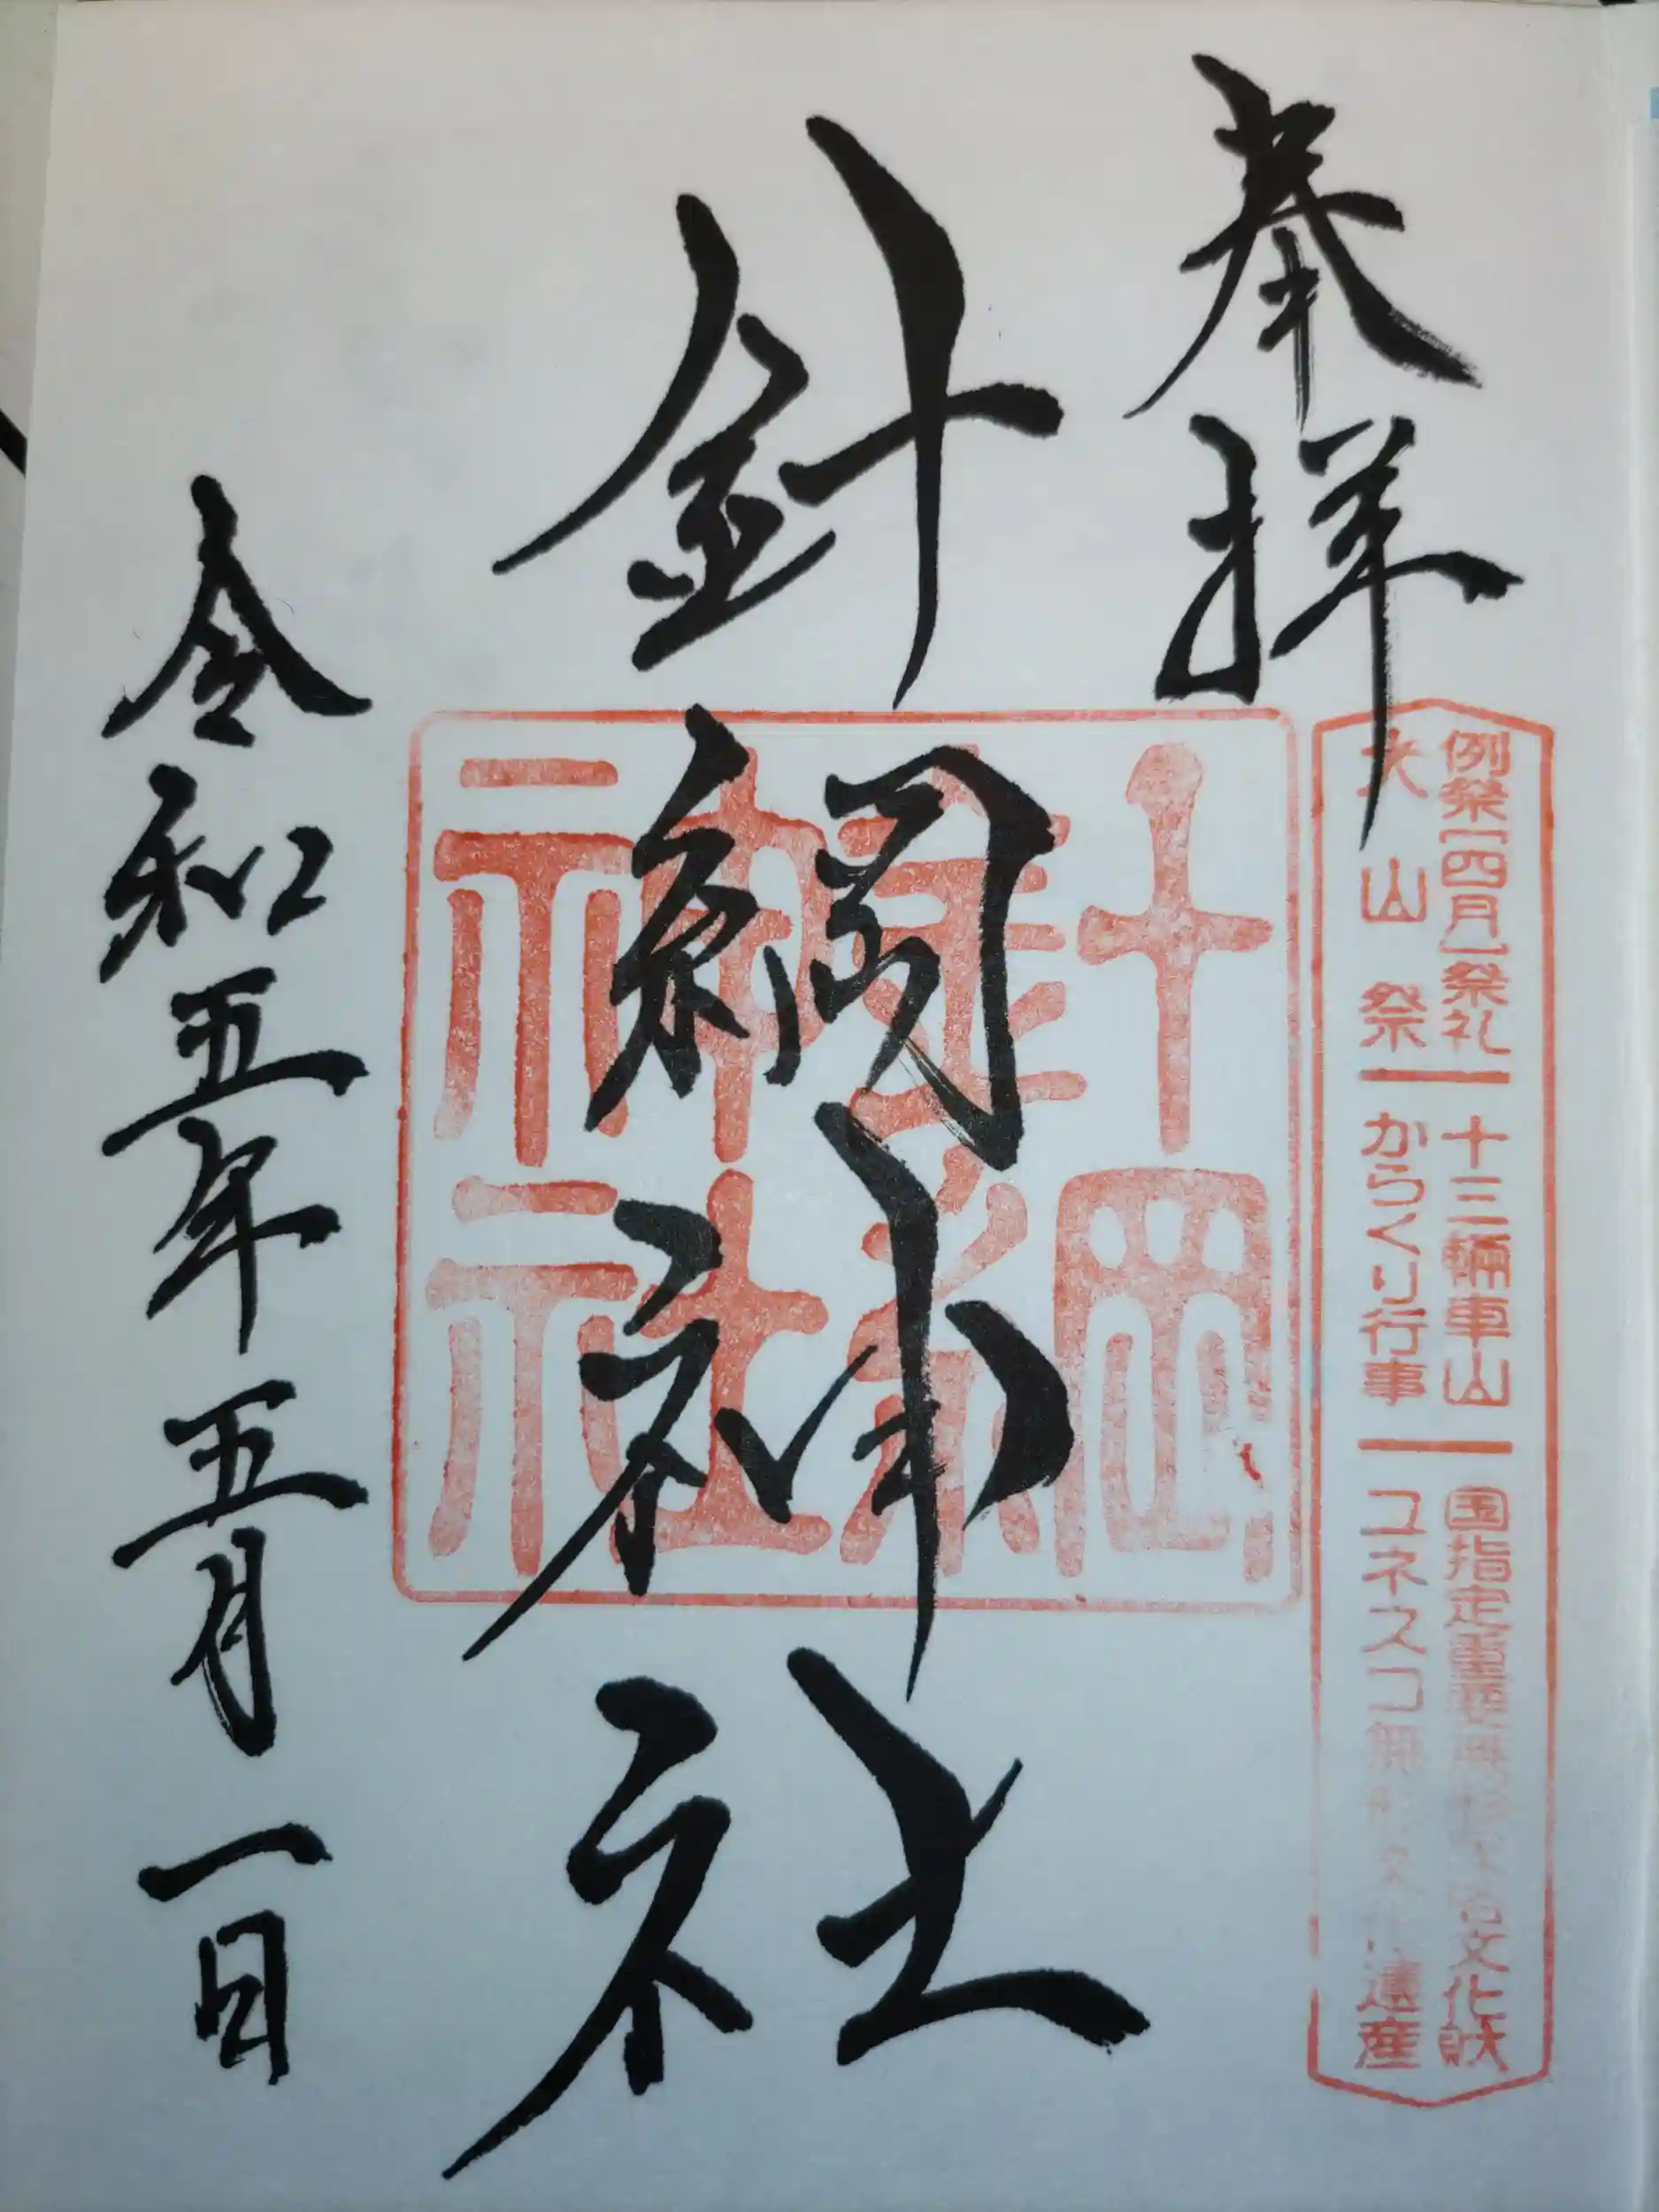 奉拝
例祭【四月】祭礼 十三輛車山 国指定重要無形民俗文化財
犬山祭 からくり行事 ユネスコ無形文化遺産
針綱神社
針綱神社
令和五年五月一日